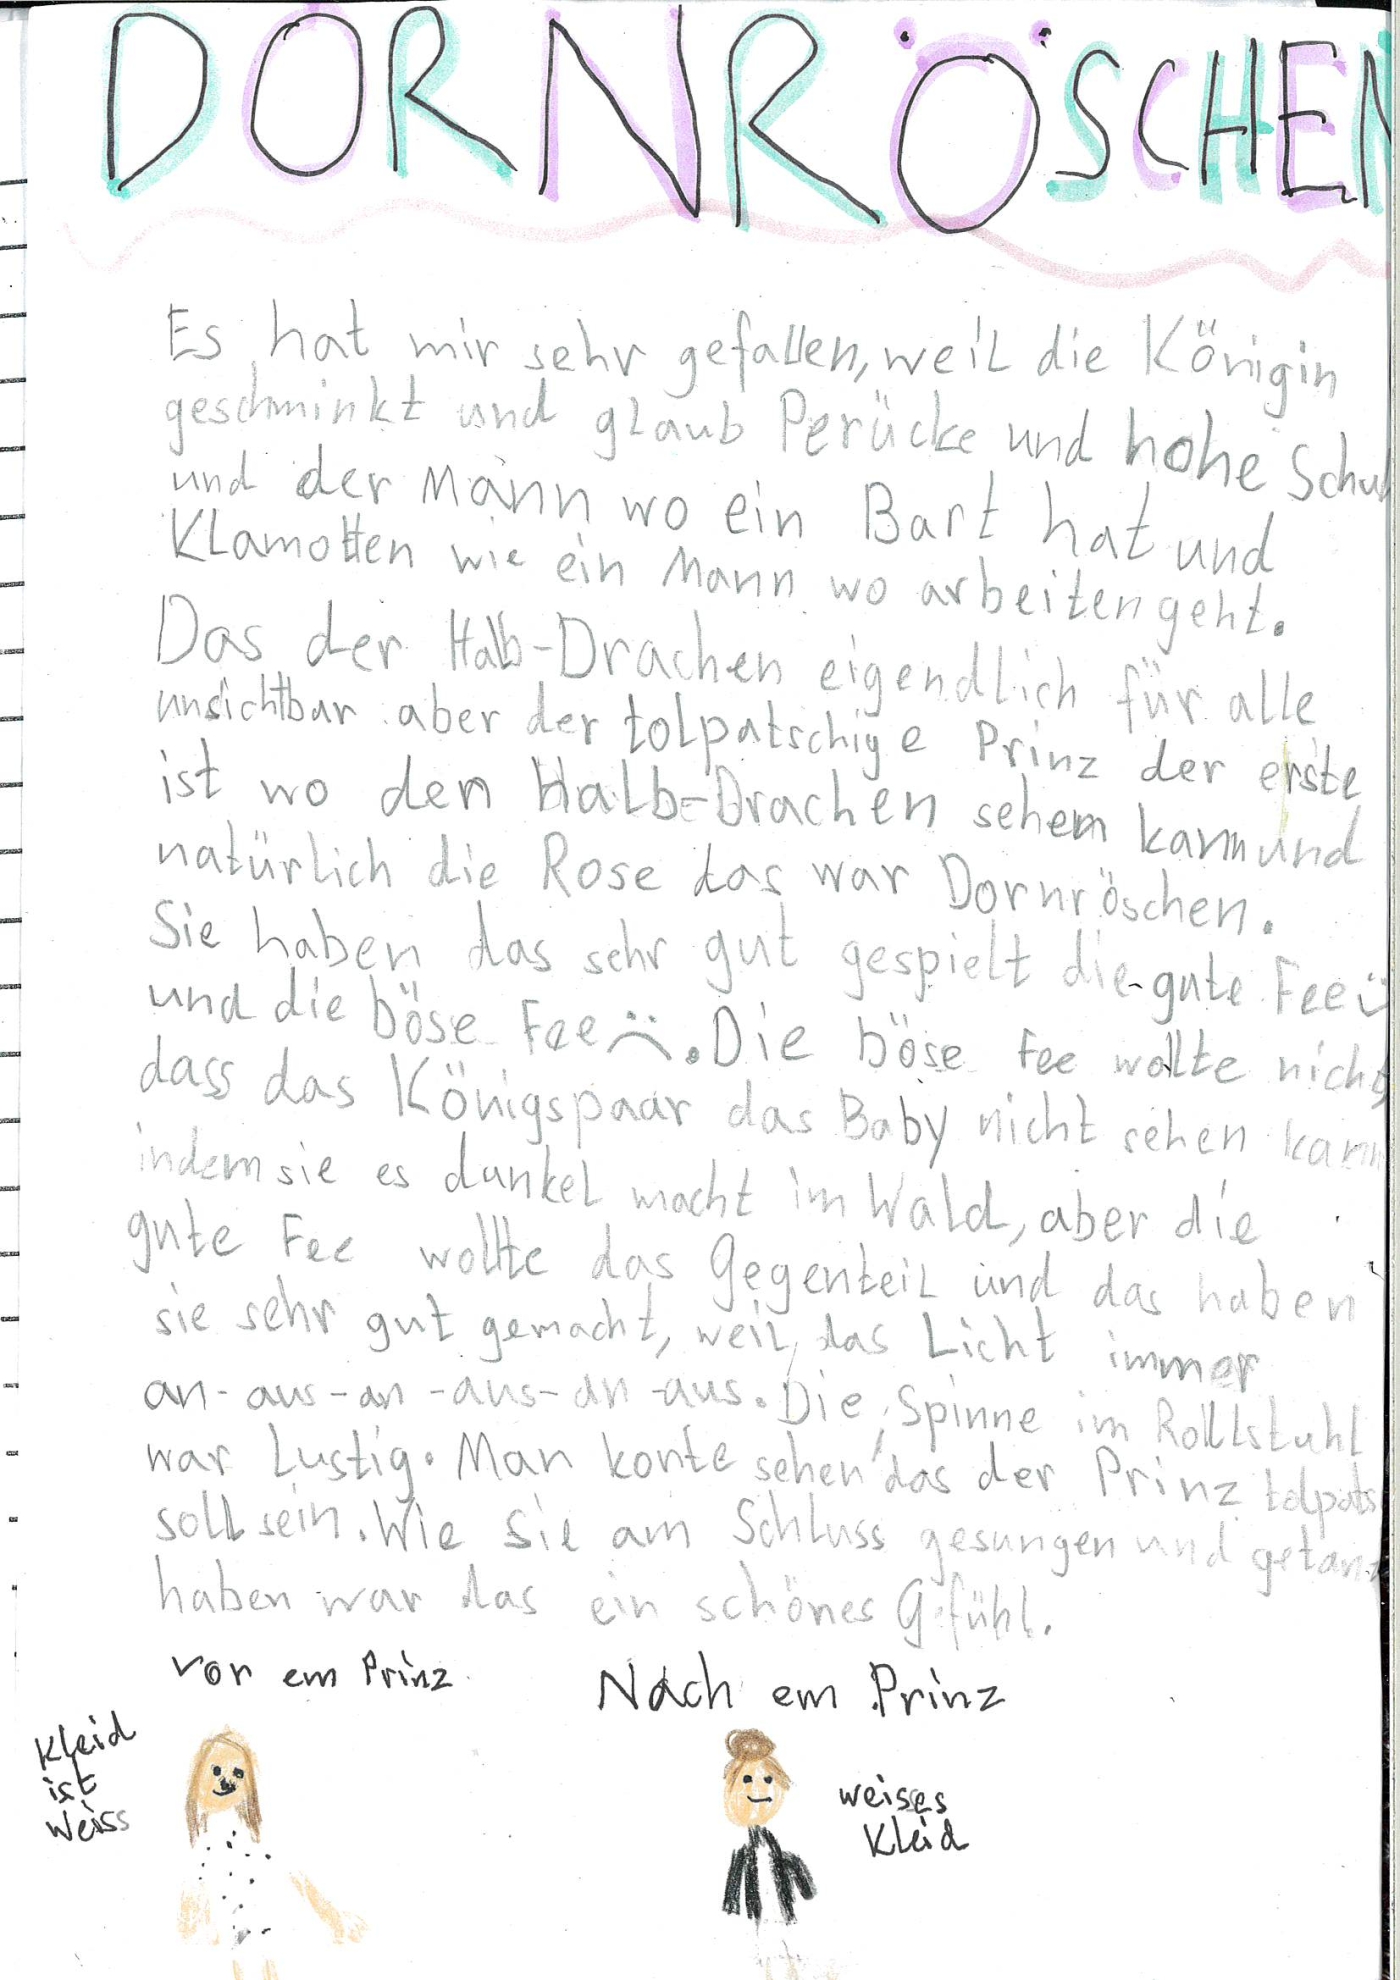 DORNRÖSCHEN
Es hat mir sehr gefallen, weil die Königin
geschminkt und glaub Perücke und hohe Schuh
und der Mann wo ein Bart hat und
Klamotten wie ein Mann wo arbeiten geht.
Das der Halb-Drachen eigendlich für alle
unsichtbar aber der tolpatschige Prinz der erste
ist wo den Halb-Drachen sehem kann und
natürlich die Rose das war Dornröschen.
Sie haben das sehr gut gespielt die gute Fee
und die böse Fee ☹. Die böse Fee wollte nicht,
dass das Königspaar das Baby nicht sehen kann
indem sie es dunkel macht im Wald, aber die
gute Fee wollte das Gegenteil und das haben
sie sehr gut gemacht, weil das Licht immer
an-aus-an-aus-an-aus. Die Spinne im Rollstuhl
war Lustig. Man konte sehen das der Prinz tolpats
soll sein. Wie sie am Schluss gesungen und getanz
haben war das ein schönes Gefühl.
vor em Prinz
Nach em Prinz
Kleid
ist
Weiss
weises
Kleid